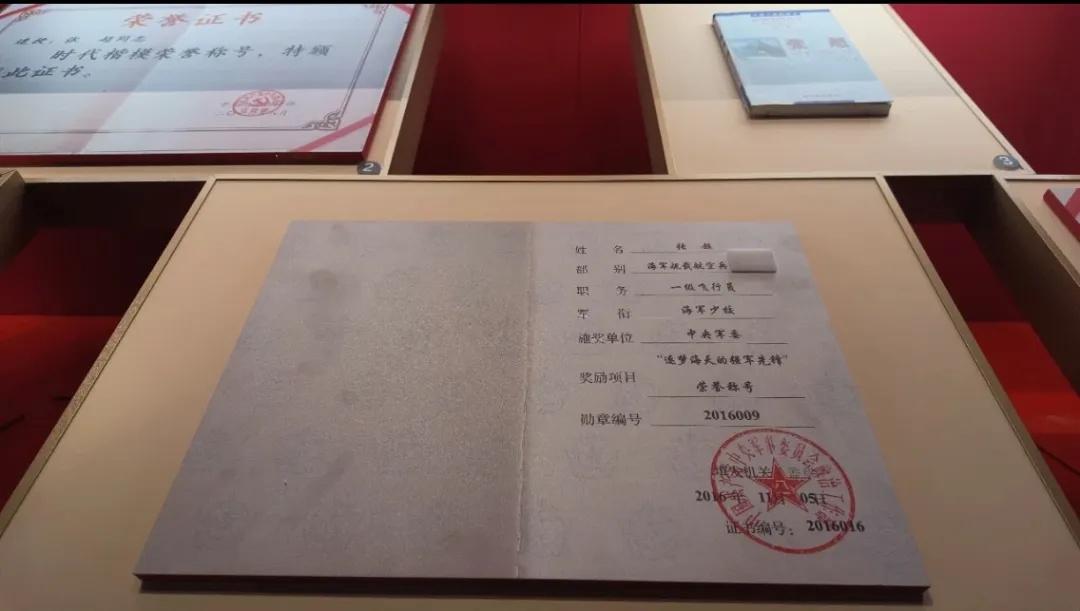 荣誉证书
授予：张 超同志
时代楷模荣誉称号，特颁
此证书。
2
3
姓 名 张 超
部 别 海军舰载航空兵
职 务 一级飞行员
军 衔 海军少校
颁奖单位 中央军委
奖励项目 “逐梦海天的强军先锋”
荣誉称号
勋章编号 2016009
填发机关
2016年 11月 05日
证书编号： 2016016